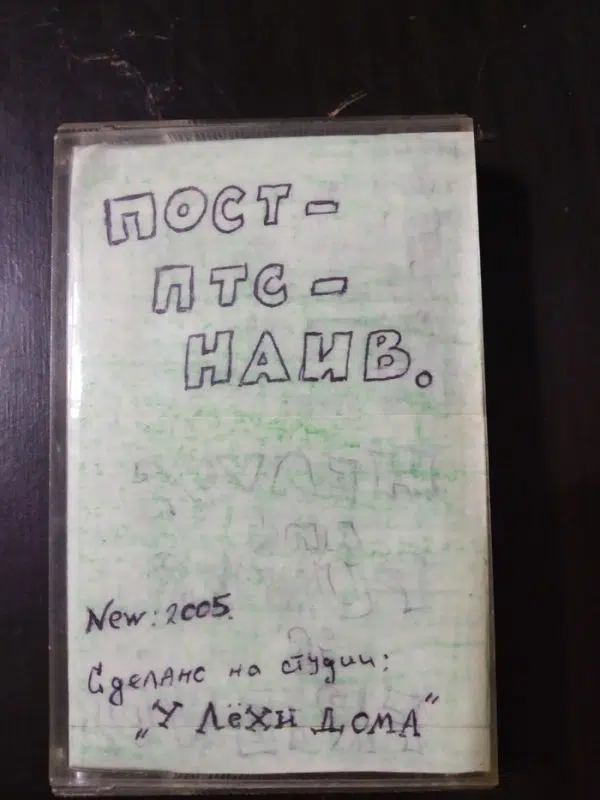 ПОСТ-
ПТС-
НАИВ.
New: 2005.
Сделано на студии:
„У ЛЁХИ ДОМА“